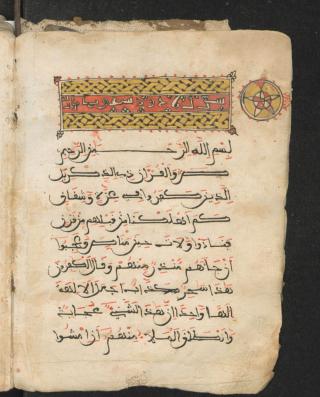 بسم الله الرحمن الرحيم
ص والقرءان ذي الذكر بل
الذين كفروا في عزة وشقاق
كم اهلكنا من قبلهم من قرن
فنادوا ولات حين مناص وعجبوا
ان جاءهم منذر منهم وقال الكفرون
هذا سحر كذاب اجعل الالهة
الها واحدا ان هذا لشيء عجاب
وانطلق الملأ منهم ان امشوا